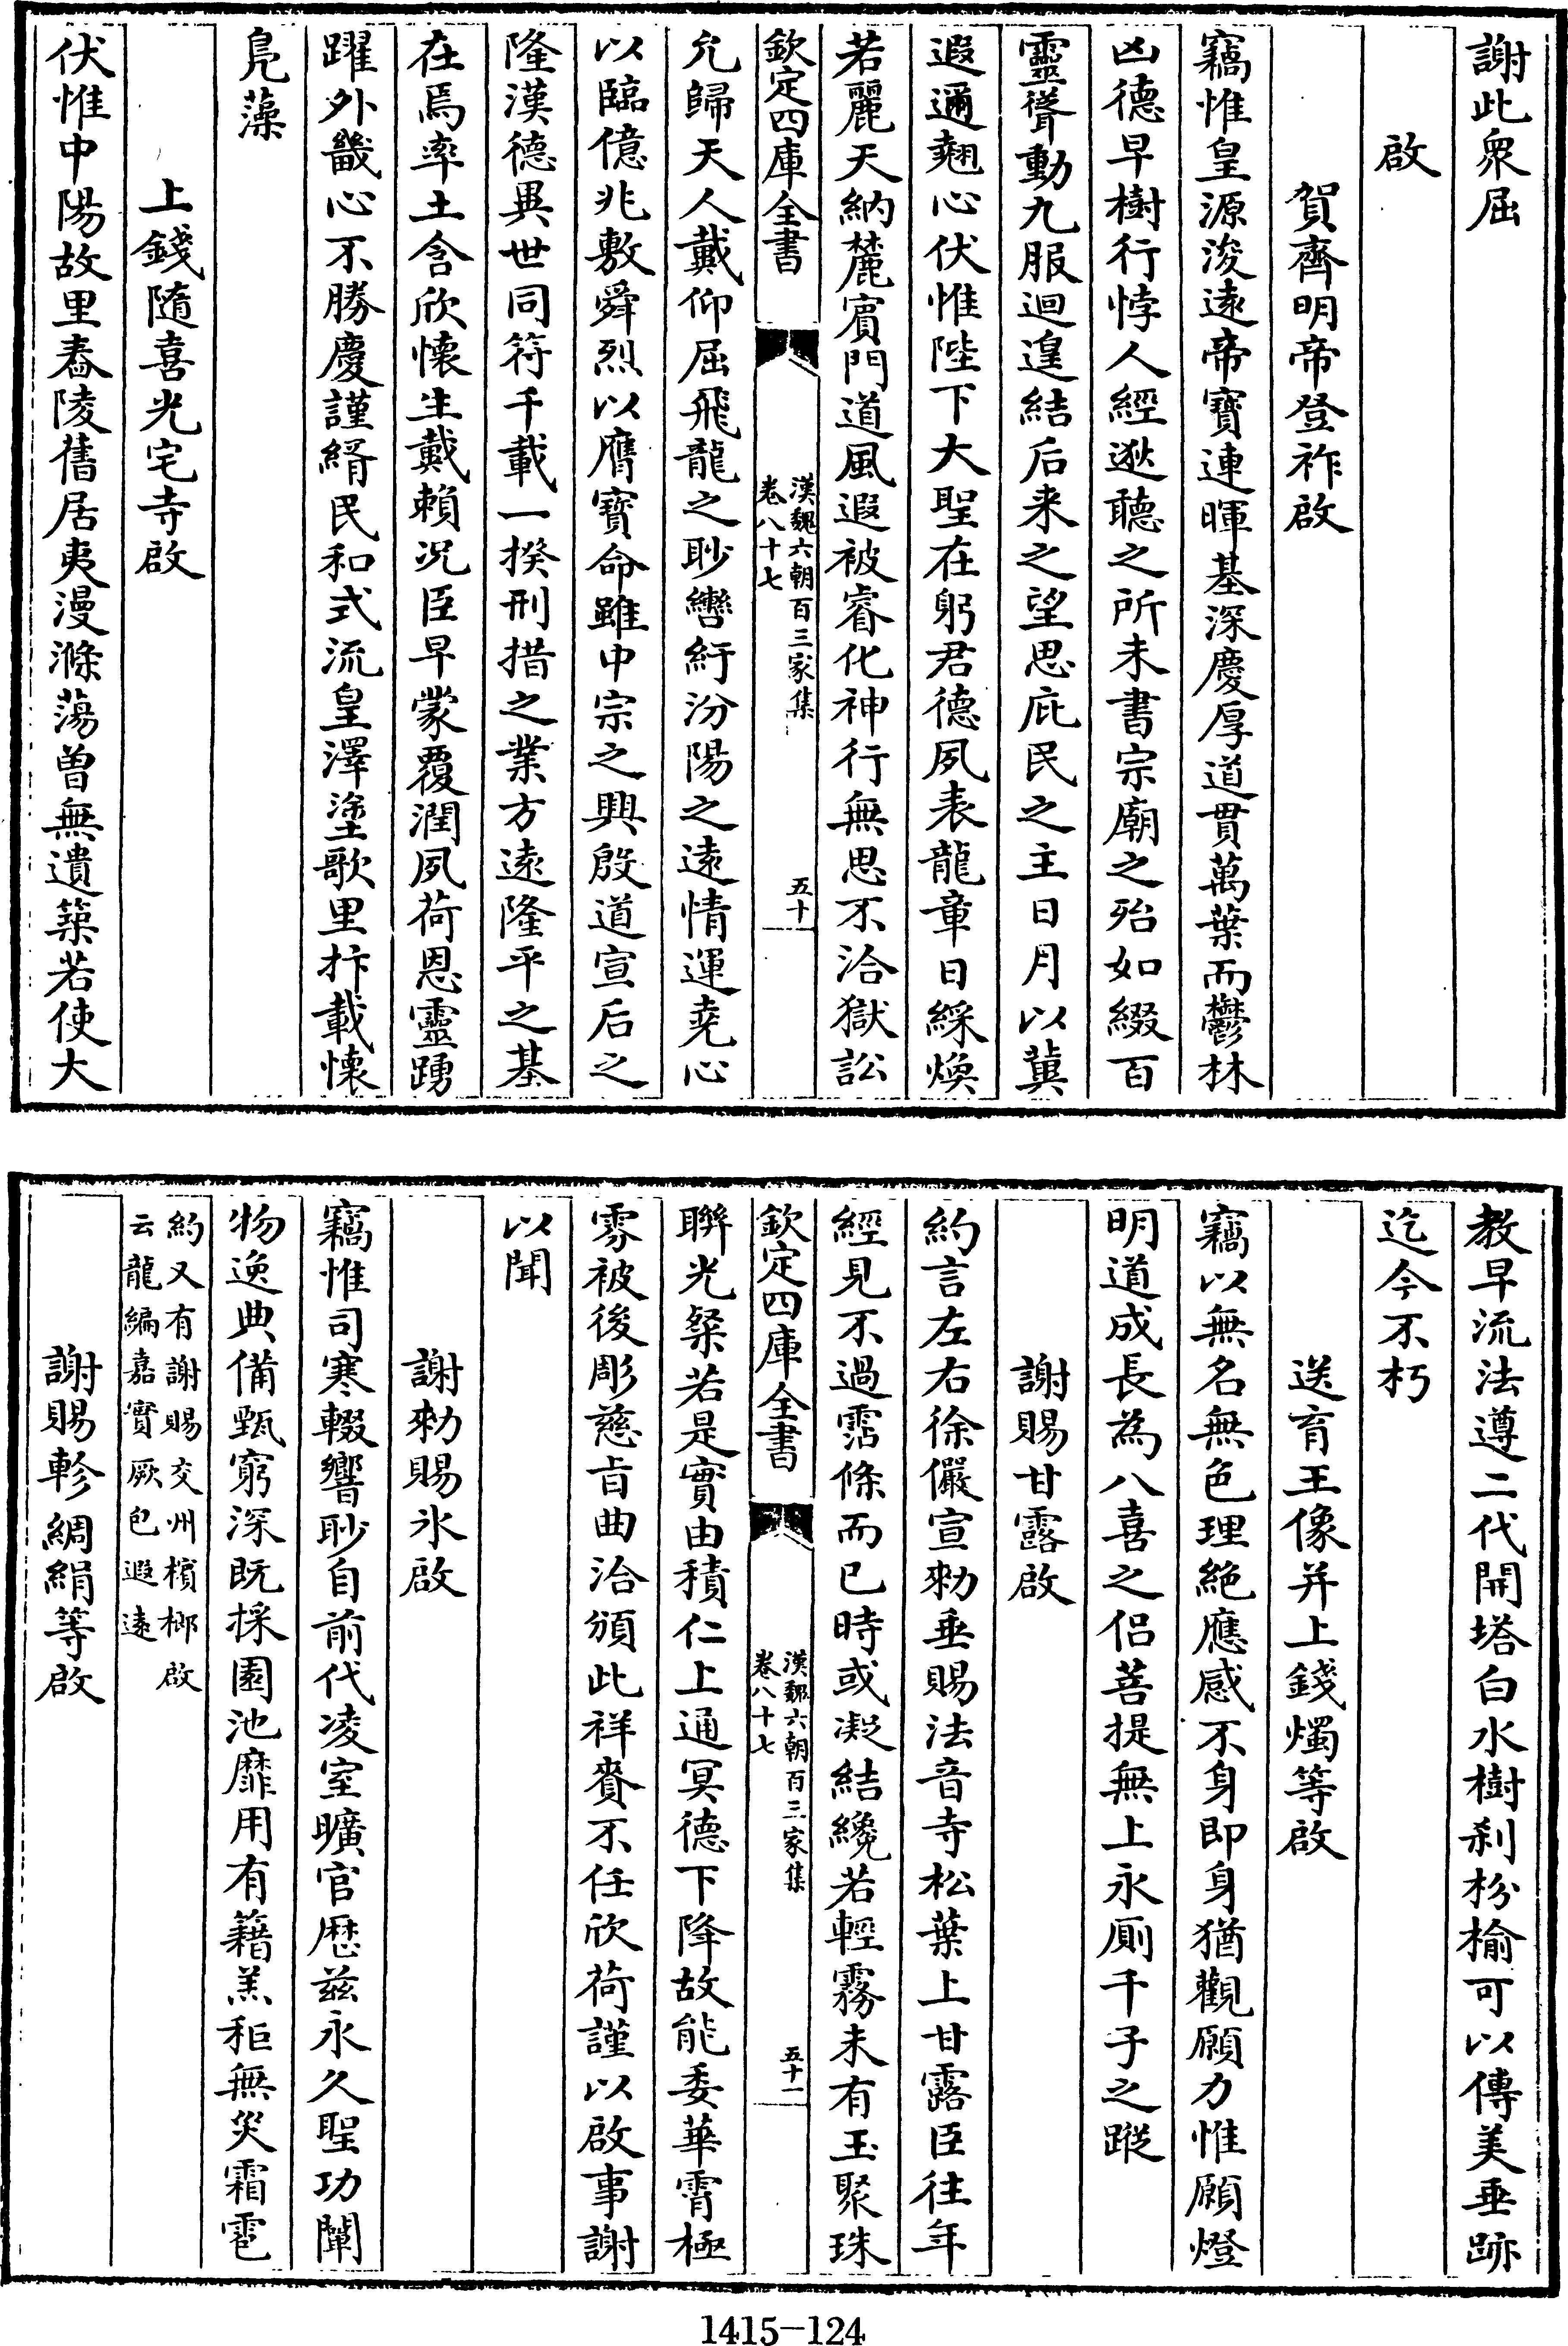 謝此衆屈
啟
賀齊明帝登祚啟
竊惟皇源浚遠帝寶連暉基深慶厚道貫萬葉而鬱林
凶德早樹行悖人經逖聽之所未書宗廟之殆如綴百
靈聳動九服迴遑結后来之望思庇民之主日月以冀
遐邇翹心伏惟陛下大聖在躬君德夙表龍章日綵煥
若麗天納麓賓門道風遐被睿化神行無思不洽獄訟
欽定四庫全書
漢魏六朝百三家集
卷八十七
五十
允歸天人戴仰屈飛龍之眇轡紆汾陽之遠情運堯心
以臨億兆敷舜烈以膺寶命雖中宗之興殷道宣后之
隆漢德異世同符千載一揆刑措之業方遠隆平之基
在焉率土含欣懷生戴賴况臣早蒙覆潤夙荷恩靈踴
躍外畿心不勝慶謹緝民和式流皇澤塗歌里抃載懷
鳧藻
上錢隨喜光宅寺啟
伏惟中陽故里舂陵舊居夷漫滌蕩曽無遺築若使大
教早流法遵二代開塔白水樹刹枌榆可以傳美垂跡
迄今不朽
送育王像并上錢燭等啟
竊以無名無色理絶應感不身即身猶觀願力惟願燈
明道成長為八喜之侣菩提無上永厠千子之蹤
謝賜甘露啟
約言左右徐儼宣勑垂賜法音寺松葉上甘露臣往年
經見不過霑條而已時或凝結纔若輕霧未有玉聚珠
欽定四庫全書
漢魏六朝百三家集
卷八十七
五十一
聯光粲若是實由積仁上通冥德下降故能委華霄極
雰被後彫慈㫖曲洽頒此祥賚不任欣荷謹以啟事謝
以聞
謝勑賜氷啟
竊惟司寒輟響眇自前代凌室曠官歴兹永久聖功闡
物逸典備甄窮深既採園池靡用有籍羔秬無災霜雹
約又有謝賜交州檳榔啟
云龍編嘉實厥包遐遠
謝賜軫綢絹等啟
1415-124